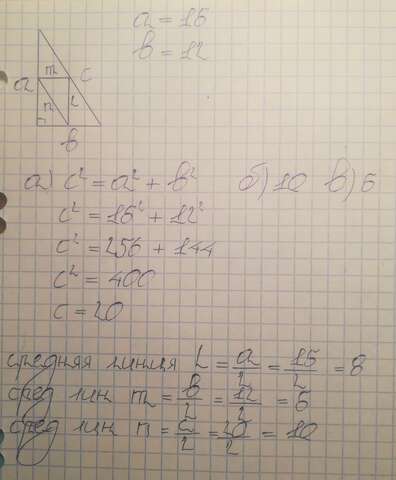 a = 16
b = 12
m c
a n L
b
а) c² = a² + b² б) 10 в) 6
c² = 16² + 12²
c² = 256 + 144
c² = 400
c = 20
средняя линия L = a/2 = 16/2 = 8
сред лин m = b/2 = 12/2 = 6
сред лин n = c/2 = 20/2 = 10